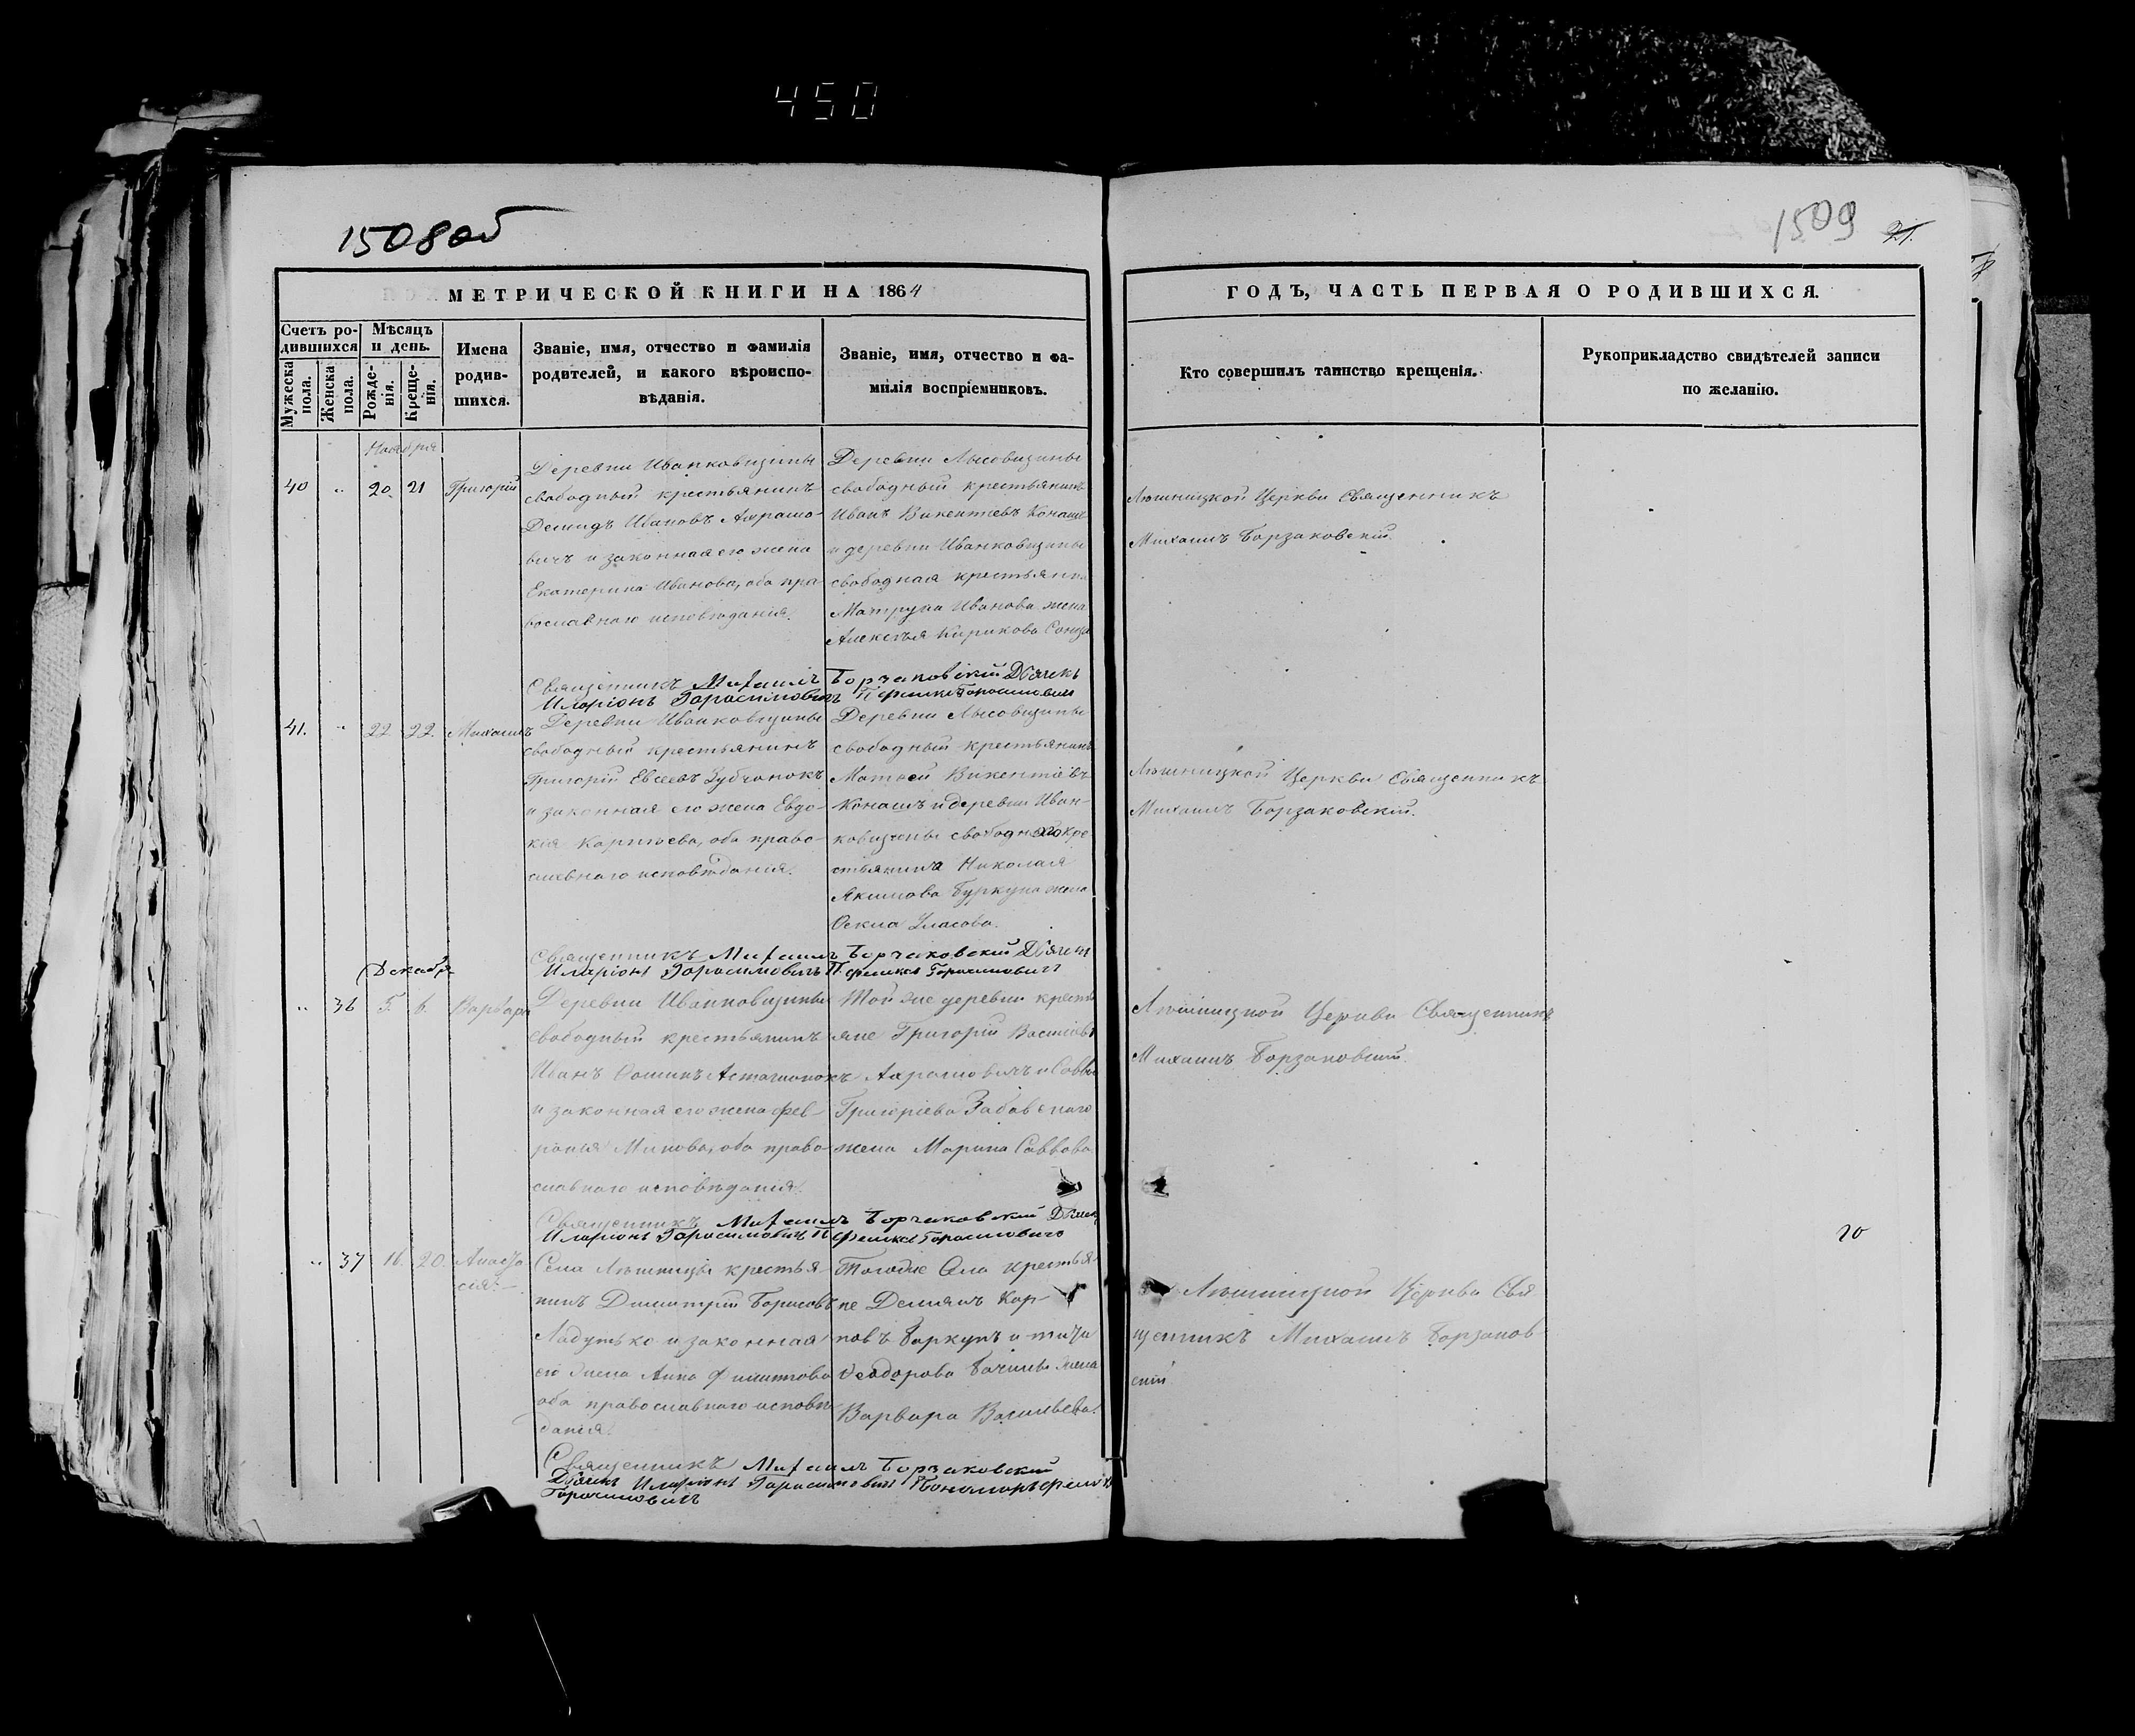 450
1508об
1509 21.
МЕТРИЧЕСКОЙ КНИГИ НА 1864
ГОДЪ, ЧАСТЬ ПЕРВАЯ О РОДИВШИХСЯ.
Счетъ ро-
дившихся
Мужеска
пола.
Женска
пола.
Мѣсяцъ
и день.
Рожде-
нія.
Креще-
нія.
Имена
родив-
шихся.
Званіе, имя, отчество и фамилія
родителей, и какого вѣроиспо-
вѣданія.
Званіе, имя, отчество и фа-
милія воспріемниковъ.
Кто совершилъ таинство крещенія.
Рукоприкладство свидѣтелей записи
по желанію.
Ноября
40 „ 20. 21 Григорій
Деревни Иванковщины
свободный крестьянинъ
Демидъ Ивановъ Ахрамо-
вичъ и законная его жена
Екатерина Иванова, оба пра-
вославнаго исповѣданія.
Деревни Лысовщины
свободный крестьянинъ
Иванъ Викентіевъ Конашъ
и деревни Иванковщины
свободная крестьянка
Матруна Иванова жена
Алексѣя Кирикова
Священникъ Михаилъ Борзаковскій Дьячекъ
Иларіонъ Гарасимовичъ Гарасимовичъ
Священникъ
Михаилъ Борзаковскій.
41. „ 22 22. Михаилъ
Деревни Иванковщины
свободный крестьянинъ
Григорій Евсеевъ Зубчонокъ
и законная его жена Евдо-
кія Карпѣева, оба право-
славнаго исповѣданія.
Деревни Лысовщины
свободный крестьянинъ
Матвей Викентіевъ
Конашъ и деревни Иван-
ковщины свободнаго кре
стьянина Николая
Якимова Буркуна жена
Власова.
Священникъ Михаилъ Борзаковскій Дьячекъ
Иларіонъ Гарасимовичъ Гарасимовичъ
Церкви Священникъ
Михаилъ Борзаковскій.
Декабря
„ 36 5. 6. Варвара
Деревни Иванковщины
свободный крестьянинъ
Иванъ Фоминъ
и законная его жена Фев-
ронія Минова, оба право-
славнаго исповѣданія.
Той же деревни кресть
яне Григорій Василіевъ
Ахрамовичъ и Саввы
Григоріева Забавскаго
жена Марина Саввова
Священникъ Михаилъ Борзаковскій Дьячекъ
Иларіонъ Гарасимовичъ Гарасимовичъ
Церкви Священникъ
Михаилъ Борзаковскій.
20
„ 37 16. 20. Анаста
сія.
Села крестья-
нинъ Димитрій Борисовъ
Ладутько и законная
его жена Анна Филипова
оба православнаго исповѣ
данія.
Тогоже Села крестья-
не Демянъ Кар-
повъ Баркунъ и
Феодорова жена
Варвара Васильева.
Священникъ Михаилъ Борзаковскій
Дьячекъ Иларіонъ Гарасимовичъ Пономарь
Гарасимовичъ
Церкви Свя
щенникъ Михаилъ Борзаков
скій